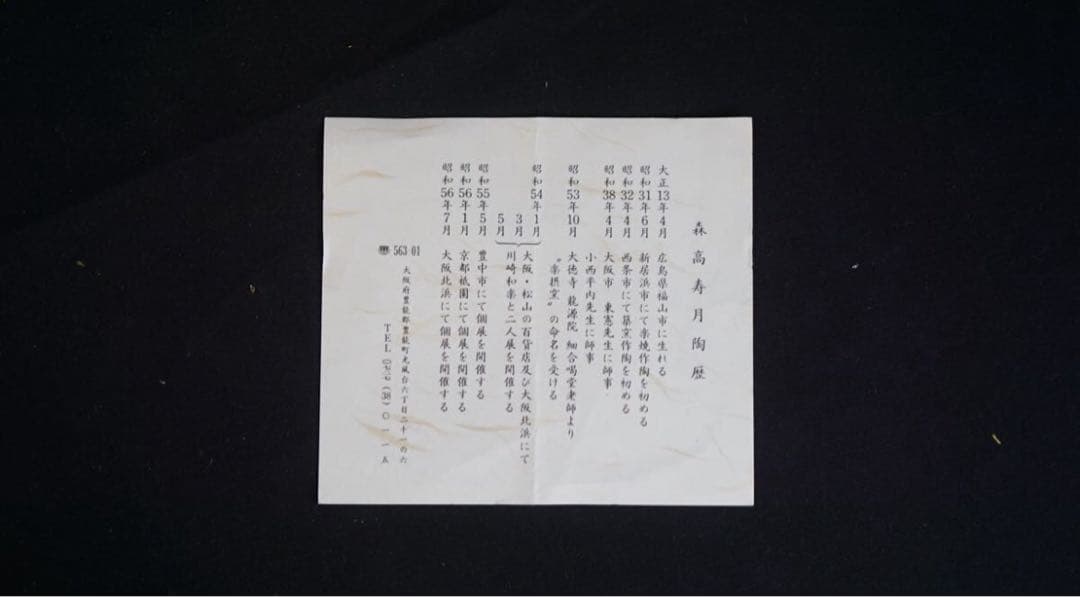 森高寿月陶歴
大正13年4月 広島県福山市に生れる
昭和31年6月 新居浜市にて楽焼作陶を初める
昭和32年4月 西条市にて築窯作陶を初める
昭和38年4月 大阪市 東憲先生に師事
小西平内先生に師事
昭和53年10月 大徳寺 龍源院 細合喝堂老師より
"楽摂窯"の命名を受ける
昭和54年1月
3月
5月
大阪・松山の百貨店及び大阪北浜にて
川崎和楽と二人展を開催する
昭和55年5月 豊中市にて個展を開催する
昭和56年1月 京都祇園にて個展を開催する
昭和56年7月 大阪北浜にて個展を開催する
563-01 大阪府豊能郡豊能町光風台六丁目二十一の六
TEL (38)〇一一五